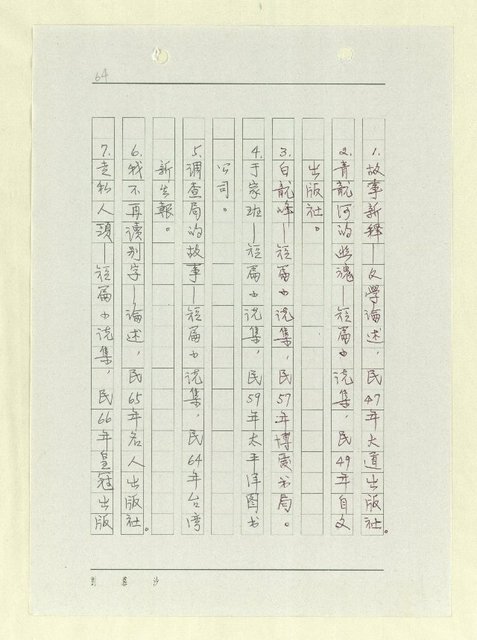 64
1.故事新釋—文學論述，民47年大道出版社。
2.青龍河的幽魂—短篇小说集，民49年自文
出版社。
3.白龍峰—短篇小说集，民57年博愛书局。
4.于家班—短篇小说集，民59年太平洋图书
公司。
5.调查局的故事—短篇小说集，民64年台湾
新生報。
6.我不再读别字—論述，民65年名人出版社。
7.走私人頭—短篇小说集，民66年皇冠出版